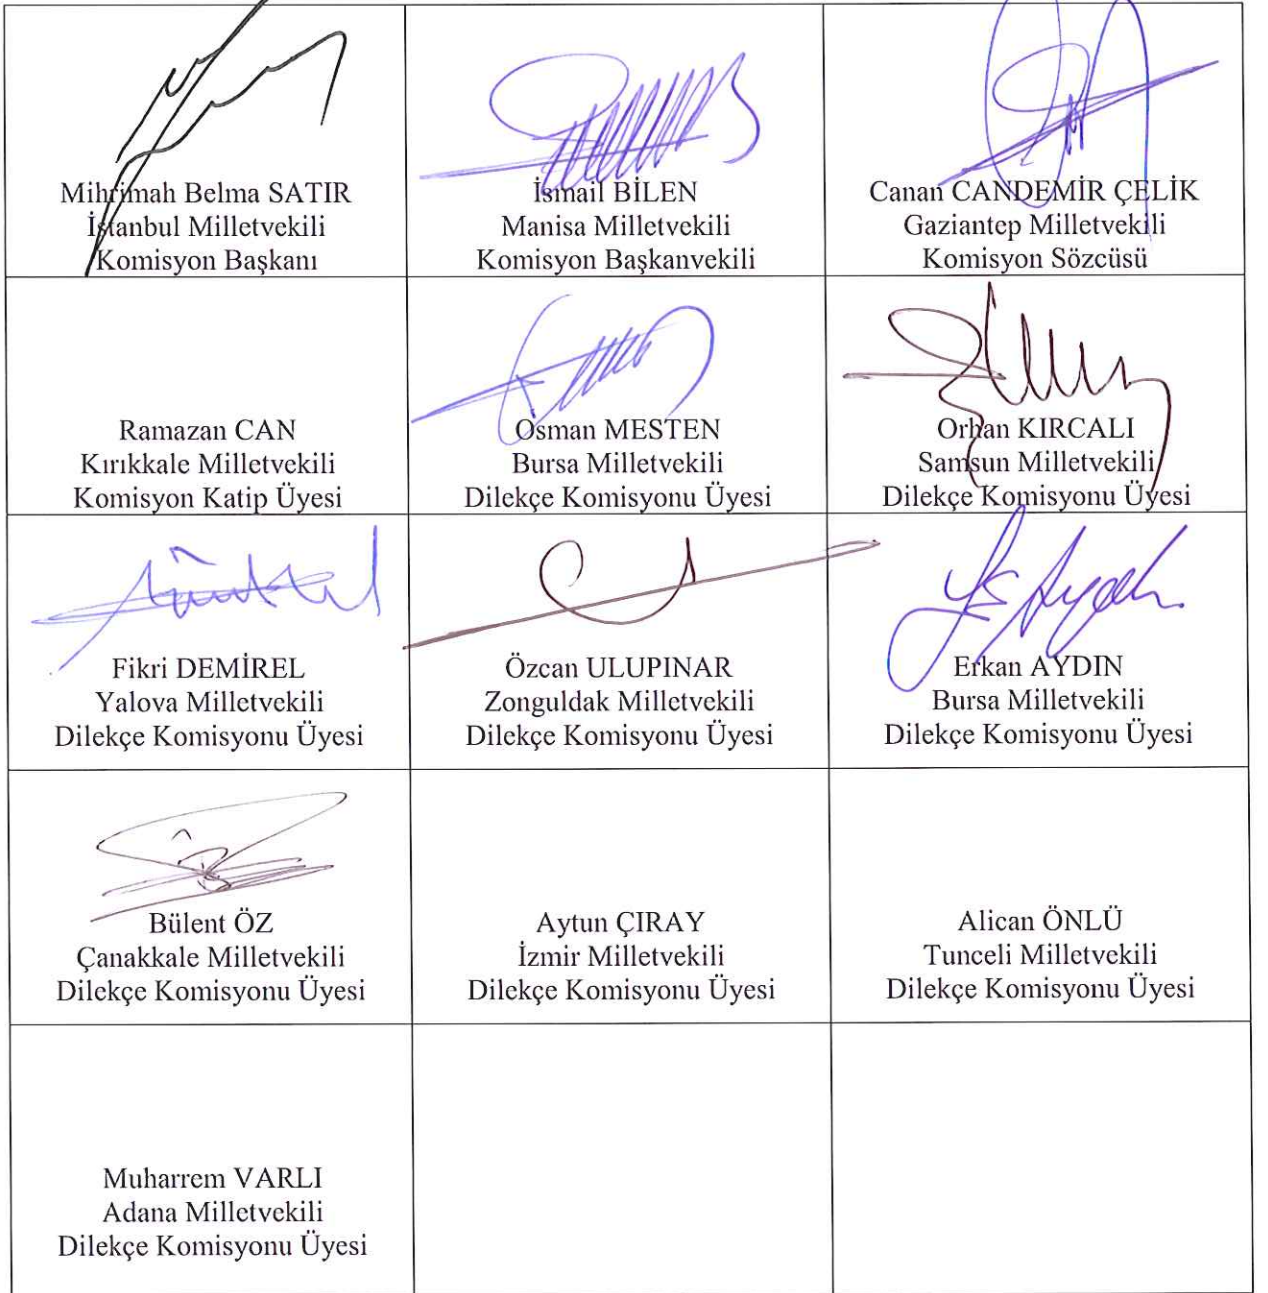 Mihrimah Belma SATIR
İstanbul Milletvekili
Komisyon Başkanı
İsmail BİLEN
Manisa Milletvekili
Komisyon Başkanvekili
Canan CANDEMİR ÇELİK
Gaziantep Milletvekili
Komisyon Sözcüsü
Ramazan CAN
Kırıkkale Milletvekili
Komisyon Katip Üyesi
Osman MESTEN
Bursa Milletvekili
Dilekçe Komisyonu Üyesi
Orhan KIRCALI
Samsun Milletvekili
Dilekçe Komisyonu Üyesi
Fikri DEMİREL
Yalova Milletvekili
Dilekçe Komisyonu Üyesi
Özcan ULUPINAR
Zonguldak Milletvekili
Dilekçe Komisyonu Üyesi
Erkan AYDIN
Bursa Milletvekili
Dilekçe Komisyonu Üyesi
Bülent ÖZ
Çanakkale Milletvekili
Dilekçe Komisyonu Üyesi
Aytun ÇIRAY
İzmir Milletvekili
Dilekçe Komisyonu Üyesi
Alican ÖNLÜ
Tunceli Milletvekili
Dilekçe Komisyonu Üyesi
Muharrem VARLI
Adana Milletvekili
Dilekçe Komisyonu Üyesi